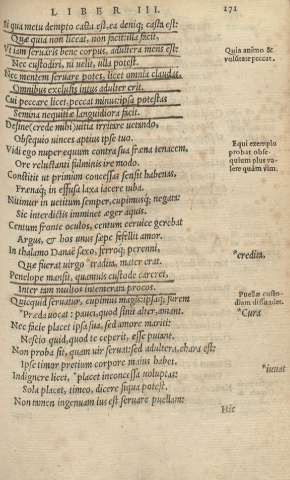 LIBER III. 171
Si qua metu dempto casta est, ea deniq; casta est:
Quæ quia non liceat, non facit: illa facit.
Vt iam seruaris bene corpus, adultera mens est:
Nec custodiri, ni uelit, ulla potest.
Nec mentem seruare potes, licet omnia claudas,
Omnibus exclusis intus adulter erit.
Cui peccare licet, peccat minus: ipsa potestas
Semina nequitiæ languidiora facit.
Desine (crede mihi) uitia irritare uetando,
Obsequio uinces aptius ipse tuo.
Vidi ego nuper equum contra sua fræna tenacem,
Ore reluctanti fulminis ire modo.
Constitit ut primum concessas sensit habenas,
Frænaq; in effusa laxa iacere iuba.
Nitimur in uetitum semper, cupimusq; negata:
Sic interdictis imminet æger aquis.
Centum fronte oculos, centum ceruice gerebat
Argus, & hos unus sæpe fefellit amor.
In thalamo Danaë saxo, ferroq; perenni,
Quæ fuerat uirgo *tradita, mater erat.
Penelope mansit, quamuis custode careret,
Inter tam multos intemerata procos.
Quicquid seruatur, cupimus magis: ipsaq; furem
*Præda uocat: pauci, quod sinit alter, amant.
Nec facie placet ipsa sua, sed amore mariti:
Nescio quid, quod te ceperit, esse putant.
Non proba fit, quam uir seruat: sed adultera, chara est:
Ipse timor pretium corpore maius habet.
Indignere licet, *placet inconcessa uoluptas:
Sola placet, timeo, dicere siqua potest.
Non tamen ingenuam ius est seruare puellam:
Hic
Quia animo &
uolūtate peccat.
Equi exemplo
probat obse-
quium plus va-
lere quàm vim.
*credita.
Puellæ custo-
diam dissuadet.
*Cura
*iuuat